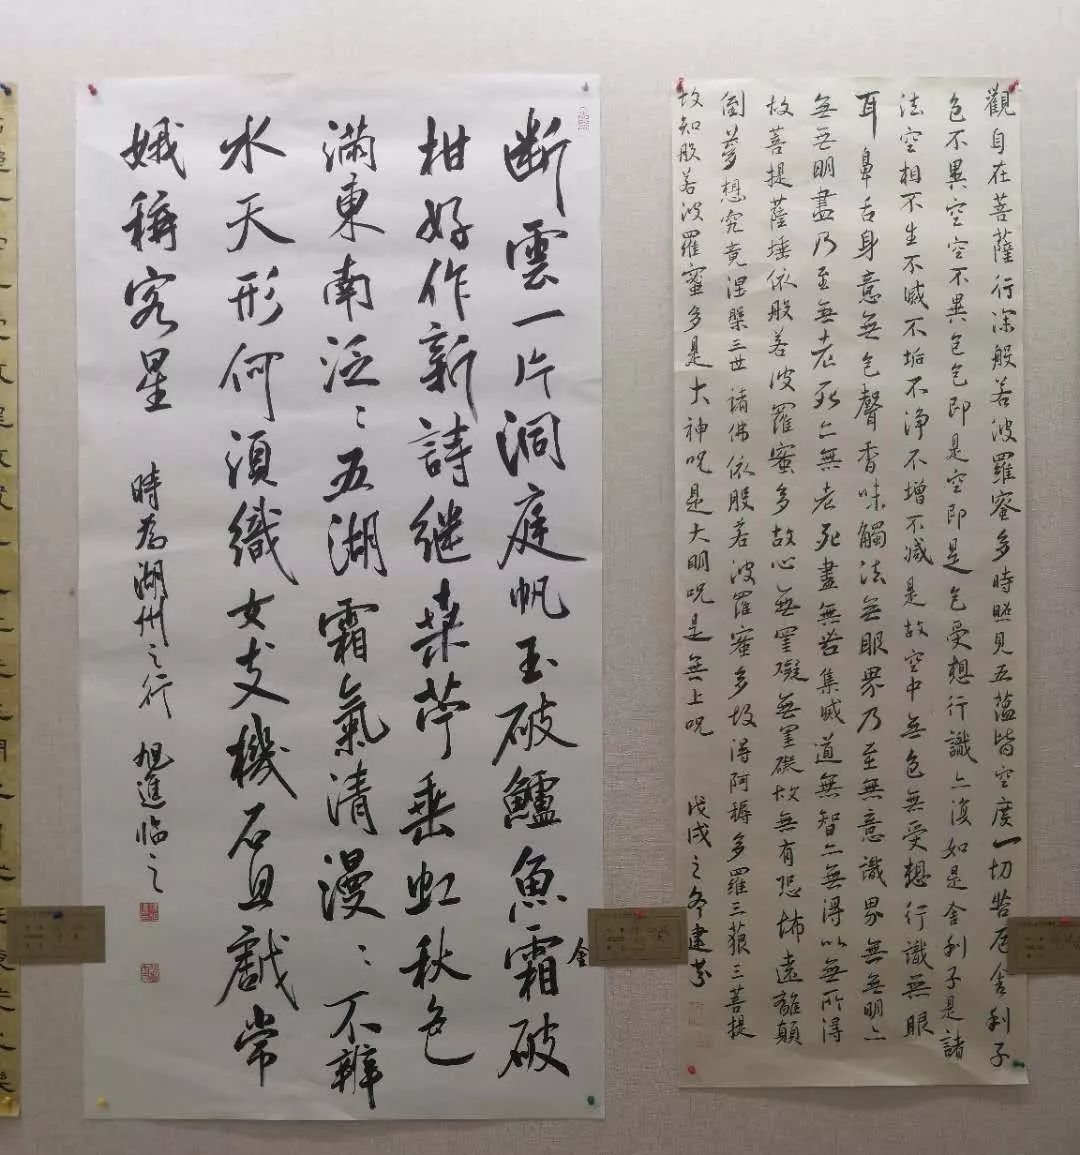 觀自在菩薩行深般若波羅蜜多時照見五蘊皆空度一切苦厄舍利子
色不異空空不異色色即是空即是色受想行識亦復如是舍利子是諸
法空相不生不滅不垢不淨不增不減是故空中無色無受想行識無眼
耳鼻舌身意無色聲香味觸法無眼界乃至無意識界無無明亦
無無明盡乃至無老死亦無老死盡無苦集滅道無智亦無得以無所得
故菩提薩埵依般若波羅蜜多故心無罣礙無罣礙故無有恐怖遠離顛
倒夢想究竟涅槃三世諸佛依般若波羅蜜多故得阿耨多羅三藐三菩提
故知般若波羅蜜多是大神咒是大明咒是無上咒 戊戌之冬建
斷雲一片洞庭帆玉破鱸魚霜破
金
柑好作新詩繼桑苧垂虹秋色
滿東南泛〻五湖霜氣清漫〻不辨
水天形何須織女支機石且戲常
娥稱客星 時為湖州之行 旭進臨之